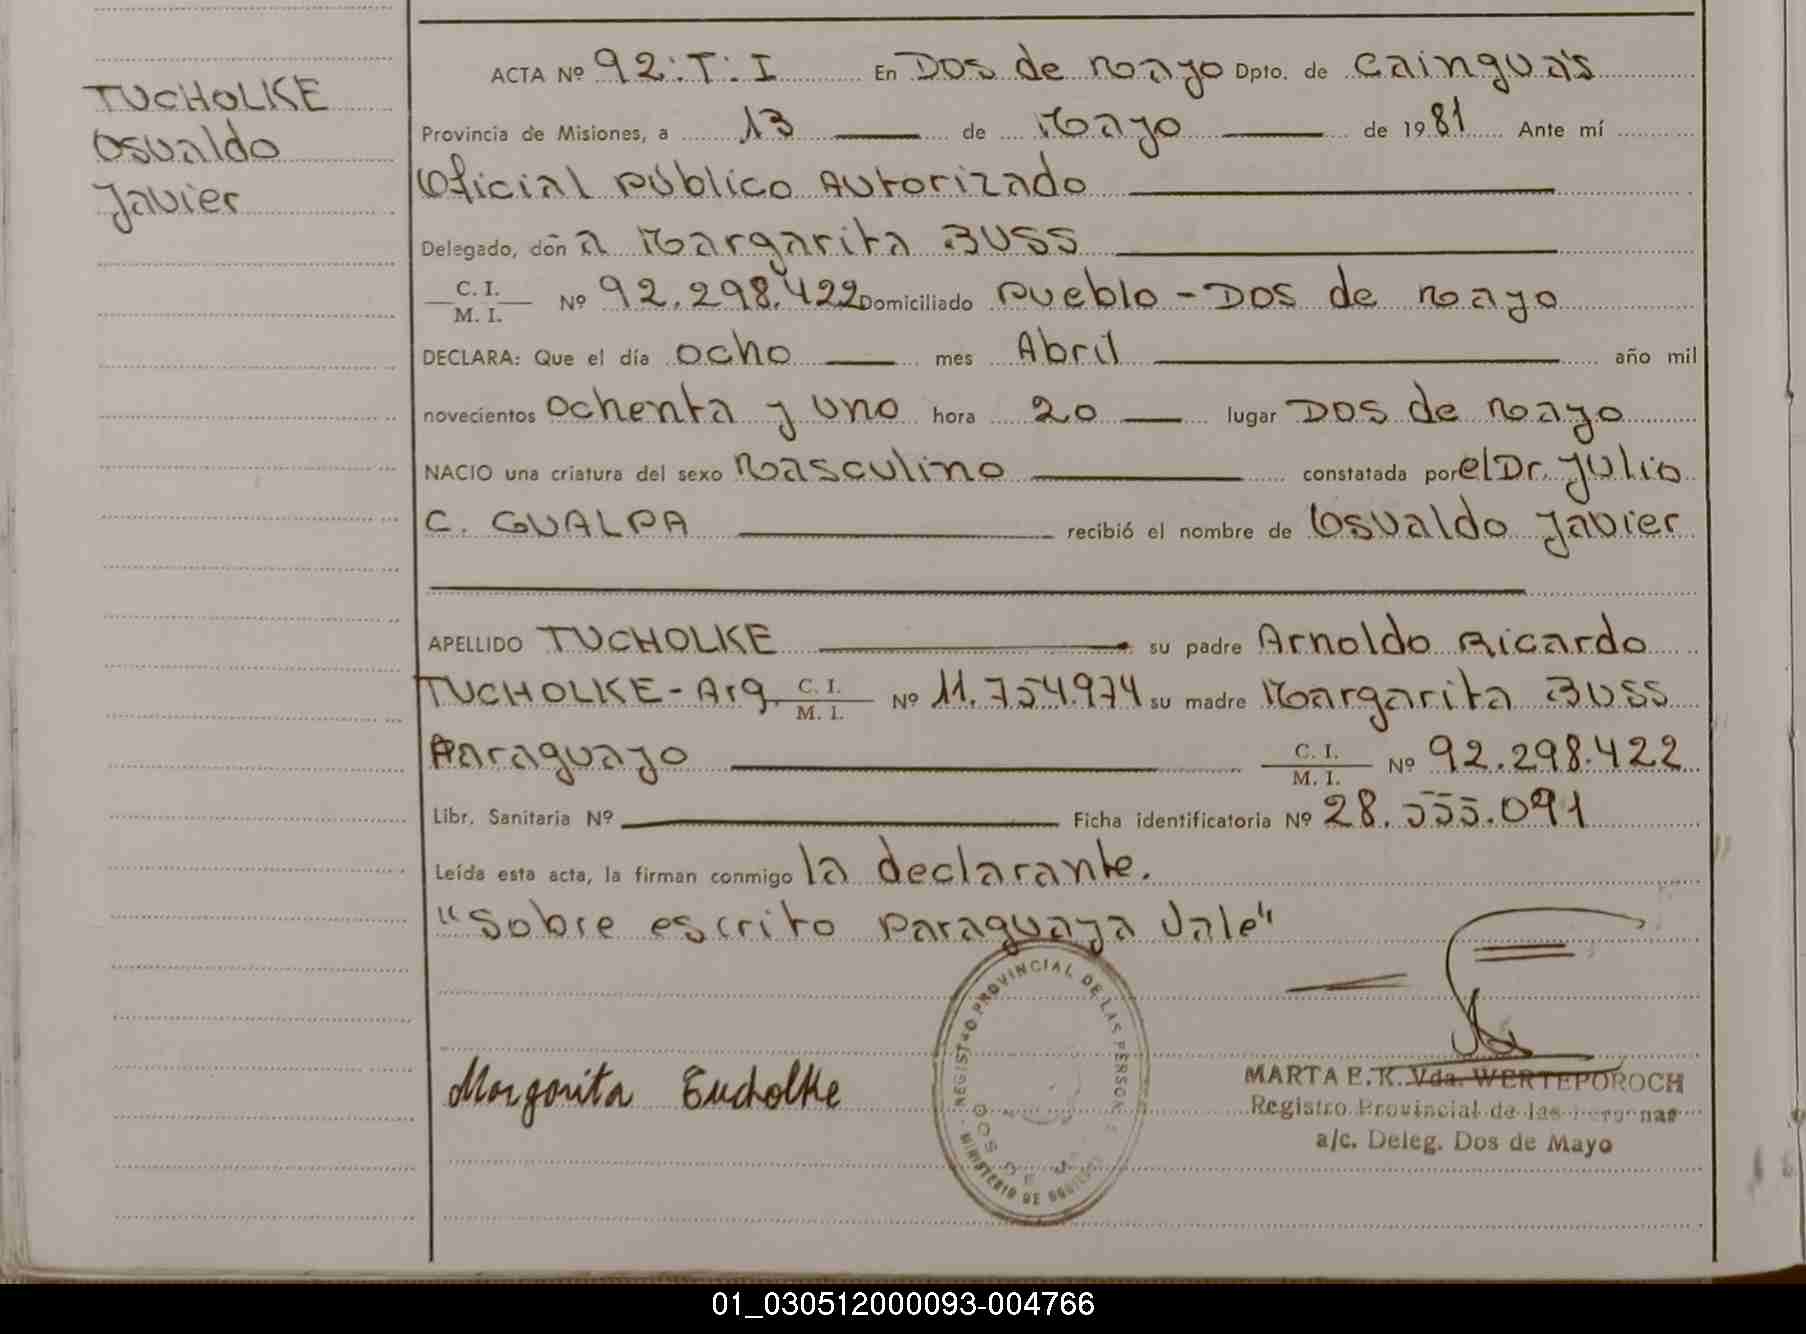 TUCHOLKE
Osvaldo
Javier
ACTA Nº 92:T:I En DOS de Mayo Dpto. de Cainguás
Provincia de Misiones, a 13 de Mayo de 1981 Ante mí
Oficial Público Autorizado
Delegado, don a Margarita BUSS
C. I. / M. I. Nº 92.298.422 Domiciliado Pueblo - DOS de Mayo
DECLARA: Que el día ocho mes Abril año mil
novecientos ochenta y uno hora 20 lugar DOS de Mayo
NACIO una criatura del sexo Masculino constatada por el Dr. Julio
C. GUALPA recibió el nombre de Osvaldo Javier
APELLIDO TUCHOLKE su padre Arnoldo Ricardo
TUCHOLKE - Arg. C. I. / M. I. Nº 11.754.974 su madre Margarita BUSS
Paraguayo C. I. / M. I. Nº 92.298.422
Libr. Sanitaria Nº Ficha identificatoria Nº 28.555.091
Leída esta acta, la firman conmigo la declarante.
"Sobre escrito Paraguaya Vale"
Margarita Tucholke
REGISTRO PROVINCIAL DE LAS PERSON
MINISTERIO DE
DOS DE
MARTA E. K. Vda. WERTEPOROCH
Registro Provincial de las Personas
a/c. Deleg. Dos de Mayo
01_030512000093-004766